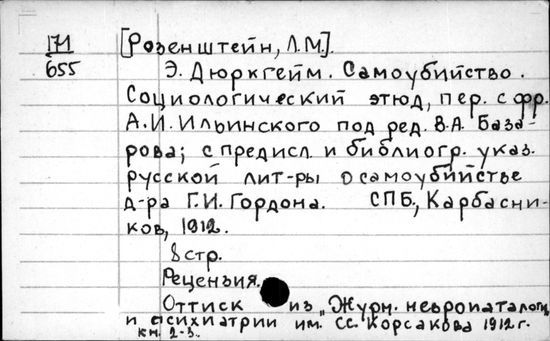 171
655
[Розенштейн, Л.М.]
Э. Дюркгейм. Самоубийство.
Социологический этюд, пер. с фр.
А.И. Ильинского под ред. В.А. База-
рова; с предисл. и библиогр. указ.
русской лит-ры о самоубийстве
д-ра Г.И. Гордона. СПБ., Карбасни-
ков, 1912.
8 стр.
Рецензия.
Оттиск из „Журн. невропатологи
и психиатрии им. С.С. Корсакова 1912 г.
кн. 2-3.